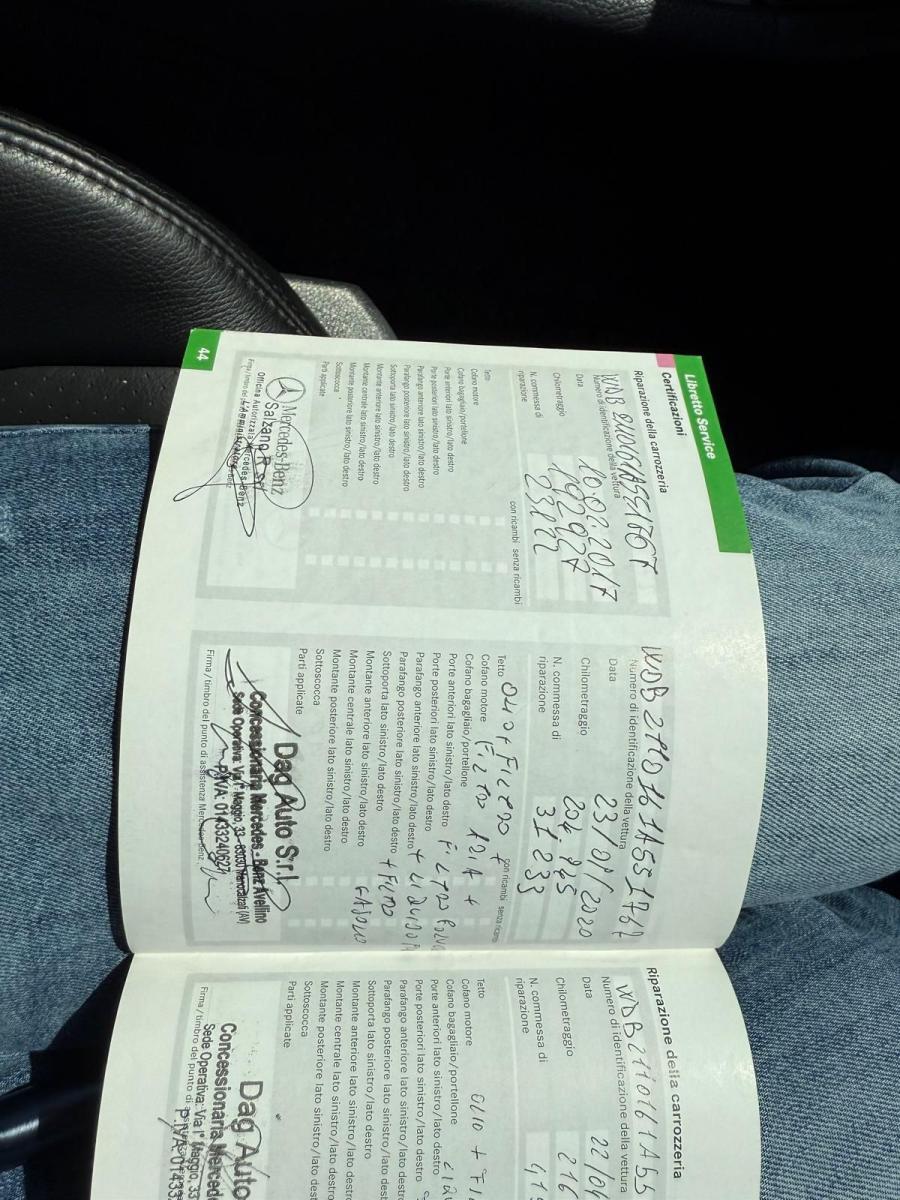 Libretto Service
Certificazioni
Riparazione della carrozzeria
Numero di identificazione della vettura
Data
10.02.2017
Chilometraggio
N. commessa di
riparazione
con ricambi senza ricambi
Tetto
Cofano motore
Cofano bagagliaio/portellone
Porte anteriori lato sinistro/lato destro
Porte posteriori lato sinistro/lato destro
Parafango anteriore lato sinistro/lato destro
Parafango posteriore lato sinistro/lato destro
Sottoporta lato sinistro/lato destro
Montante anteriore lato sinistro/lato destro
Montante centrale lato sinistro/lato destro
Montante posteriore lato sinistro/lato destro
Sottoscocca
Parti applicate
Mercedes-Benz
Officina Autorizzata Mercedes-Benz
44
Numero di identificazione della vettura
Data
23/01/2020
Chilometraggio
204.845
N. commessa di
riparazione
31233
con ricambi senza ricambi
Tetto
Cofano motore
Cofano bagagliaio/portellone
Porte anteriori lato sinistro/lato destro
Porte posteriori lato sinistro/lato destro
Parafango anteriore lato sinistro/lato destro
Parafango posteriore lato sinistro/lato destro
Sottoporta lato sinistro/lato destro
Montante anteriore lato sinistro/lato destro
Montante centrale lato sinistro/lato destro
Montante posteriore lato sinistro/lato destro
Sottoscocca
Parti applicate
Dag Auto S.r.l
Concessionaria Mercedes - Benz Avellino
Sede Operativa: Via I° Maggio, 33 - 83030 Manocalzati (AV)
P.IVA: 01433240627
Firma / timbro del punto di assistenza Mercedes-Benz
Riparazione della carrozzeria
Numero di identificazione della vettura
Data
22/0
Chilometraggio
216
N. commessa di
riparazione
Tetto
Cofano motore
Cofano bagagliaio/portellone
Porte anteriori lato sinistro/lato destro
Porte posteriori lato sinistro/lato destro
Parafango anteriore lato sinistro/lato destro
Parafango posteriore lato sinistro/lato destro
Sottoporta lato sinistro/lato destro
Montante anteriore lato sinistro/lato destro
Montante centrale lato sinistro/lato destro
Montante posteriore lato sinistro/lato dest
Sottoscocca
Parti applicate
Dag Auto
Concessionaria Merced
Sede Operativa: Via I° Maggio, 33
P.IVA: 01433
Firma / timbro del punto di